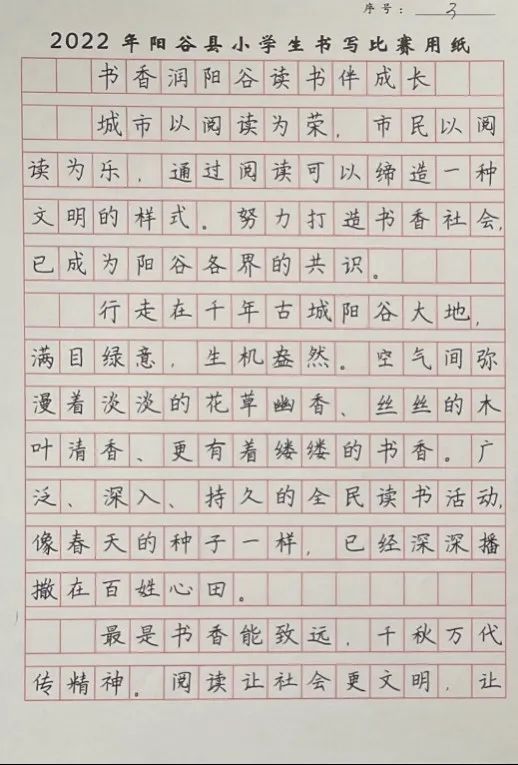 序号：3
2022年阳谷县小学生书写比赛用纸
书香润阳谷读书伴成长
城市以阅读为荣，市民以阅
读为乐，通过阅读可以缔造一种
文明的样式。努力打造书香社会，
已成为阳谷各界的共识。
行走在千年古城阳谷大地，
满目绿意，生机盎然。空气间弥
漫着淡淡的花草幽香、丝丝的木
叶清香、更有着缕缕的书香。广
泛、深入、持久的全民读书活动，
像春天的种子一样，已经深深播
撒在百姓心田。
最是书香能致远，千秋万代
传精神。阅读让社会更文明，让